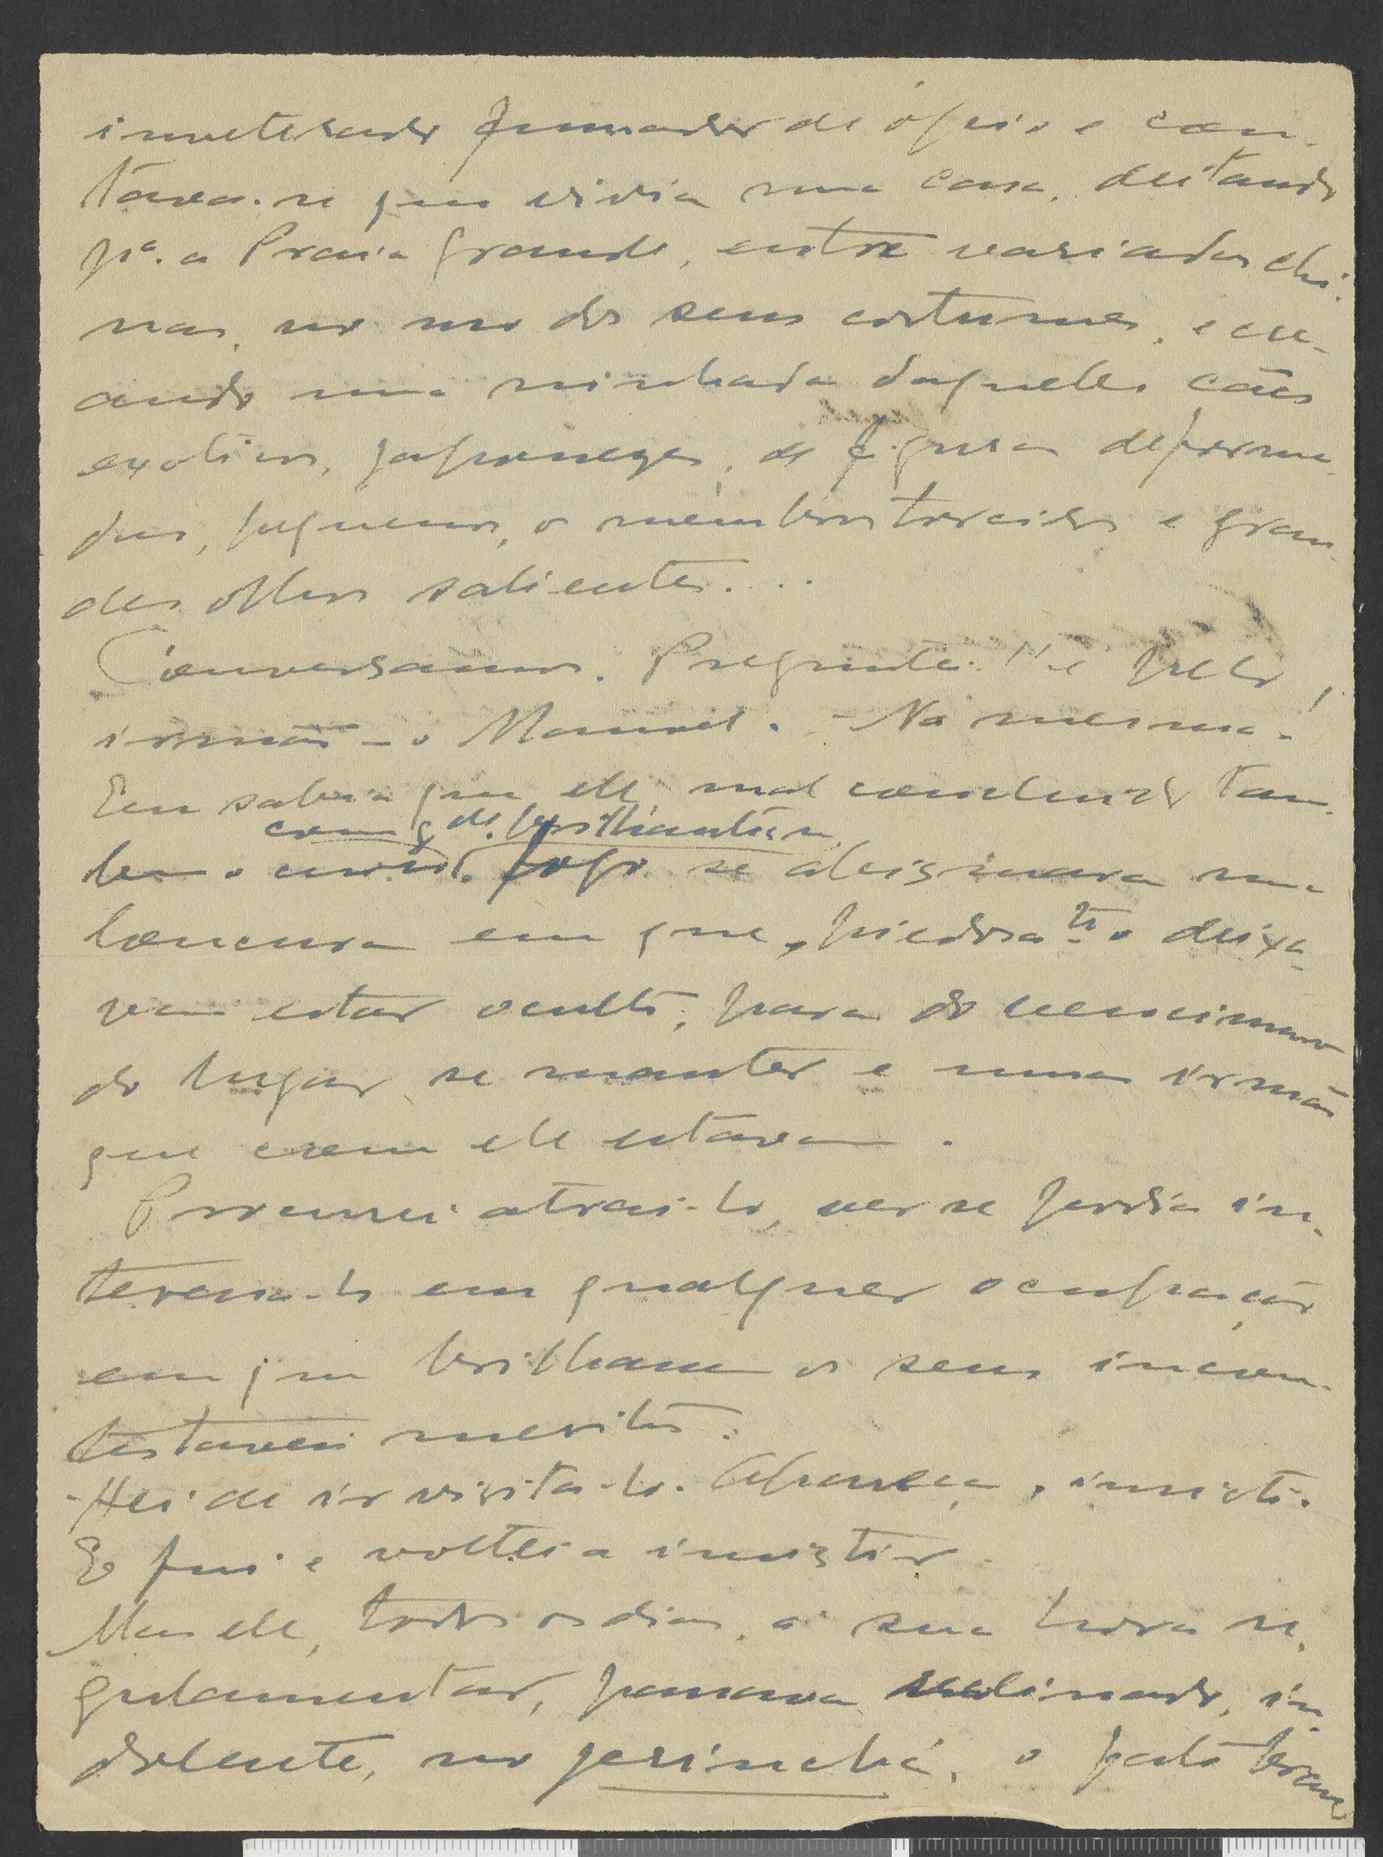 inveterado fumador de ópio e con-
tava-se que vivia numa casa, deitando
pª. a Praia Grande, entre variadas chi-
nas, no uso dos seus costumes, e cre-
ando uma ninhada daquelles cães
exoticos, japonezes, de figura deforma-
dos, pequenos, os membros torcidos e gran-
des olhos salientes...
Conversamos. Preguntei-lhe pelo
irmão - o Manuel. - Na mesma!
Eu sabia que elle, mal concluido tam-
com gde. brilhantismo,
bem o curso, logo se abismara numa
loucura em que, piedosate o deixa-
vam estar occulto, para do vencimento
do lugar se manter e uma irmã
que com elle estava.
Procurei atrai-lo, ver se podia in-
teressa-lo em qualquer ocupação
em que brilhassem os seus incon-
testaveis meritos.
- Hei de ir visita-lo. Apareça, insisti.
E fui e voltei a insistir.
Mas elle, todos os dias, á sua hora re-
gulamentar, passava reclinado, in-
dolente, no jerinchá, o fato branco